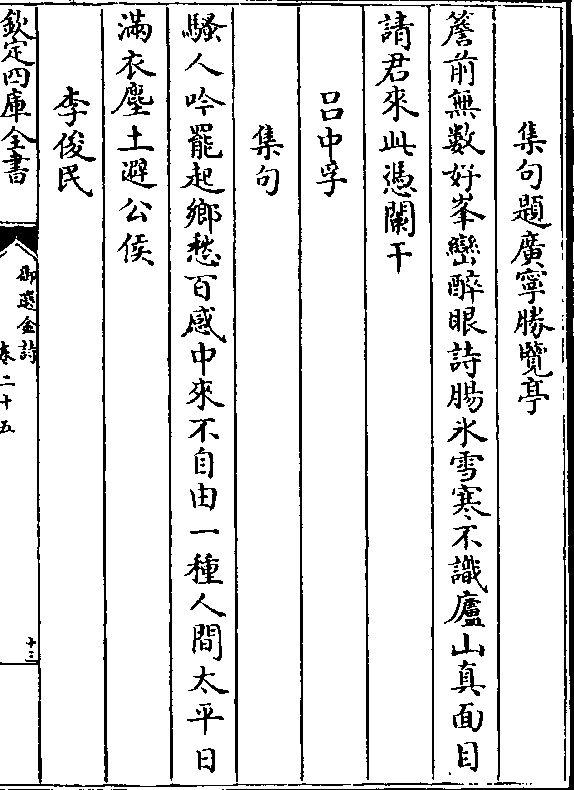 集句題廣寧勝覽亭
簷前無數好峯巒醉眼詩腸氷雪寒不識廬山真面目
請君來此憑闌干
吕中孚
集句
騷人吟罷起鄉愁百感中來不自由一種人間太平日
滿衣塵土避公侯
李俊民
欽定四庫全書
御選金詩
卷二十五
十三